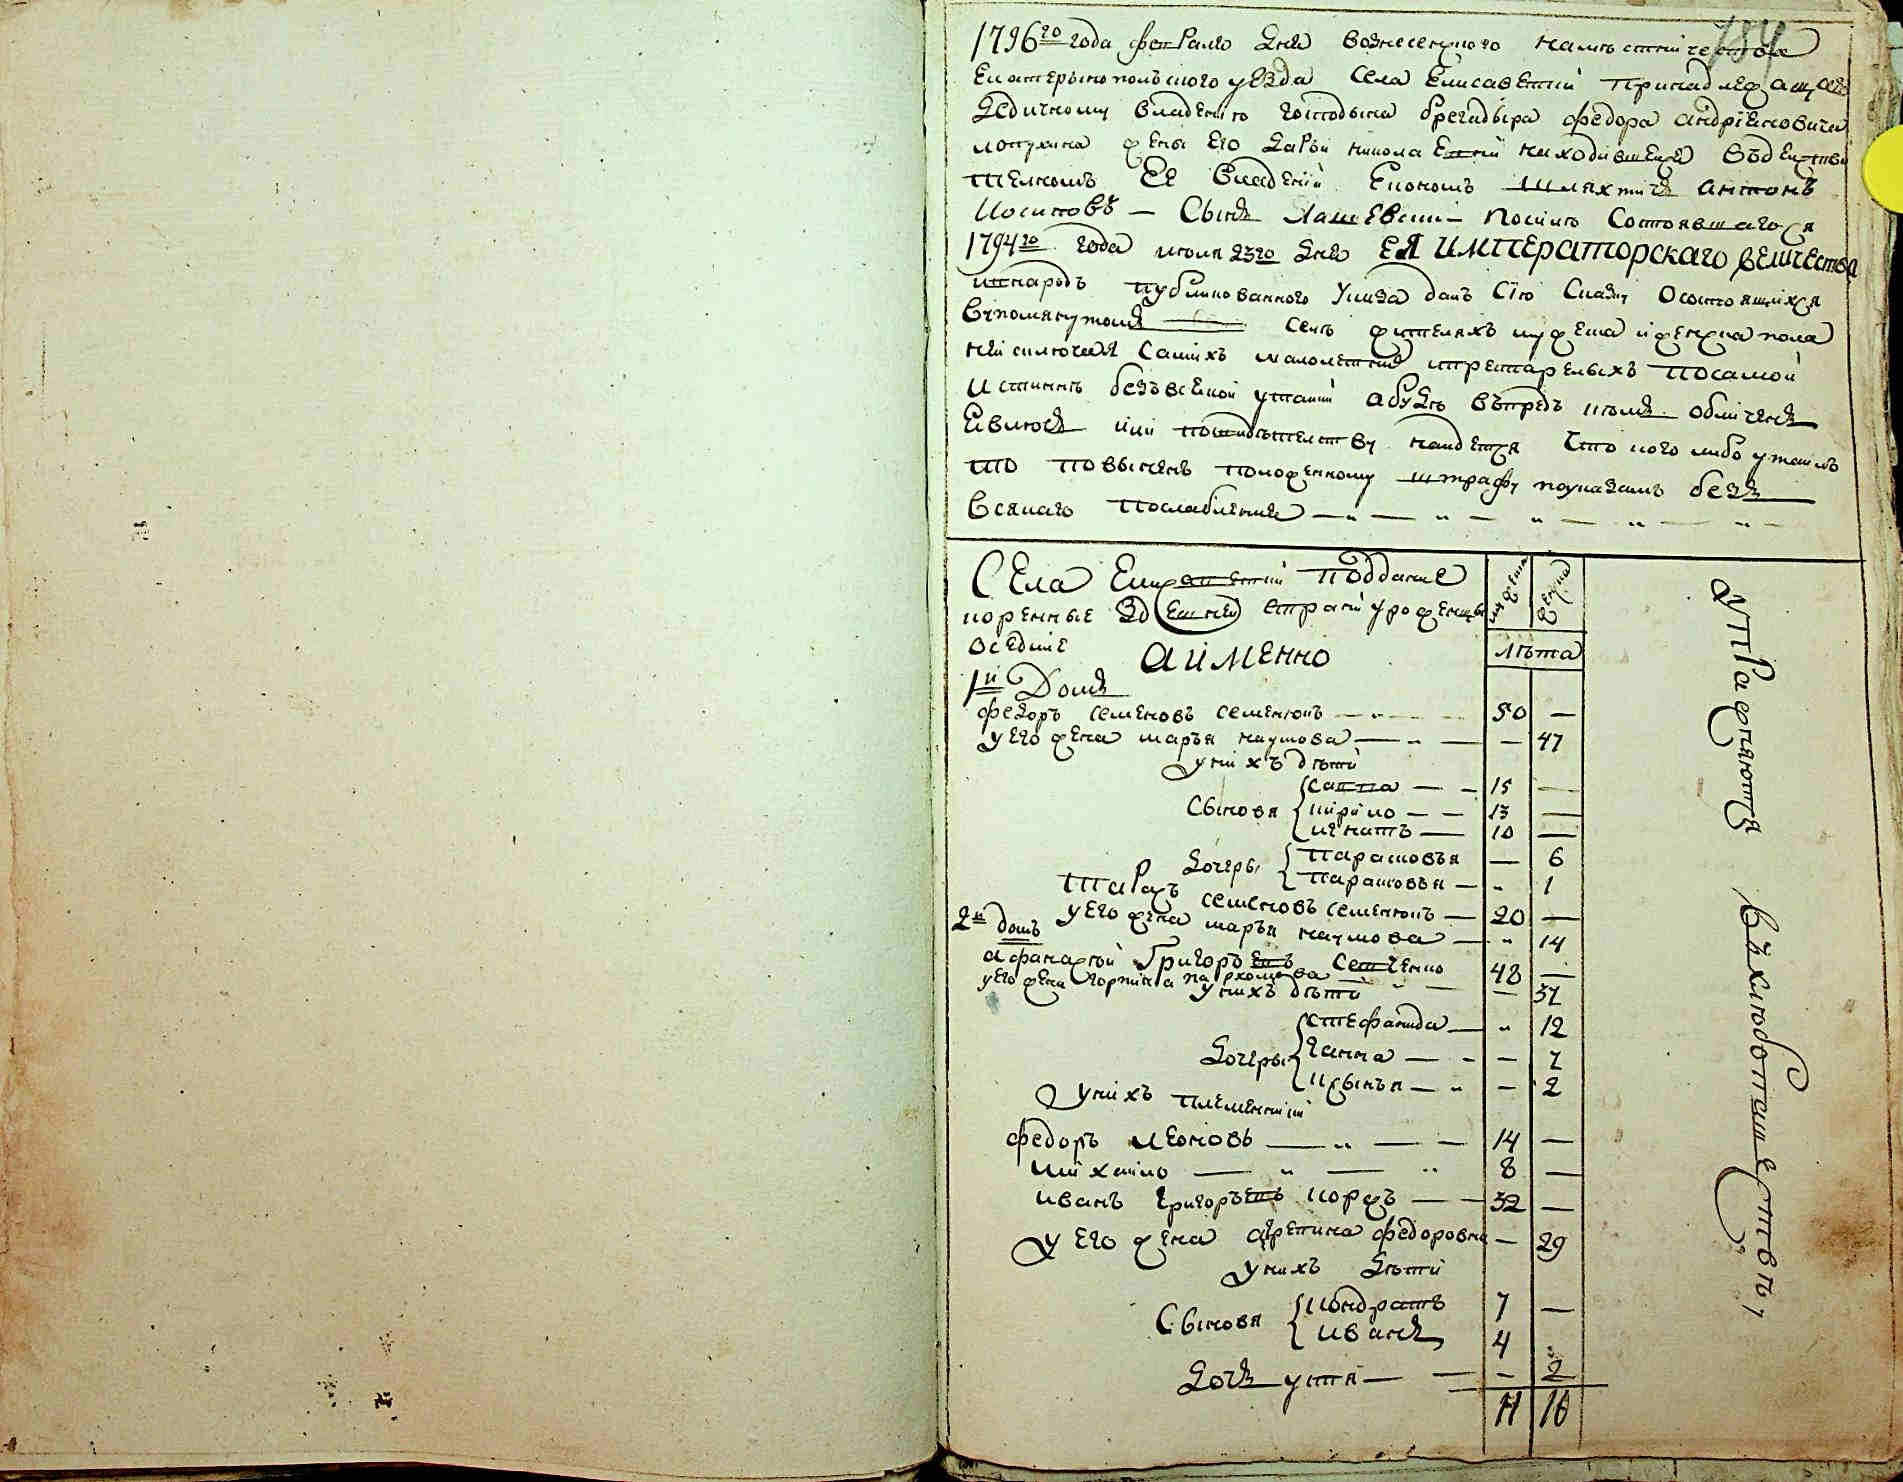 784
1796го года февраля дня вознесенского наместничества
Екатеринопольского уезда села Елисаветки принадлежащего
ведичному владению господина брегадира федора андрїеновича
лопухина жены его дарьи николаевны находившейся
ее владении Економъ шляхтичъ антонъ
Иосиповъ — Сынъ Лашевски — По силѣ Состоявшагося
1794го года июня 23го дня ЕЯ ИМПЕРАТОРСКАГО величества
инародъ публикованного Указа далъ Сїю Сказку Осостоящихся
вупомянутомъ селѣ жителяхъ мужеска и женска пола
не исключая самихъ малолетних ипрестарелыхъ посамой
Истиннѣ безъ всякой утайки абуде впредъ кѣмъ обличенъ
явлюсь или посвидѣтелству найдется Что кого либо утаилъ
то повиненъ положенному штрафу поуказамъ безъ
всякаго Послабления
Села Елисаветки подданые
коренные Здешней страни уроженцы
оседлие
а именно
мужеска
женска
лѣта
1й Домъ
федоръ семеновъ семенюкъ 50 —
у его жена марья наумова — 47
у нихъ дѣти
Сыновя
сапка 15 —
кирило 13 —
игнатъ 10 —
дочеры
парасковья — 6
парасковья — 1
Тарасъ семеновъ семенюкъ 20 —
у его жена марья наумова — „ 14
2й домъ
афанасей Григорьевъ Сетченко 48 —
у его жена горпина пархомова — 37
у нихъ дѣти
дочеры
стефанида „ 12
ганна — 7
ирынья — 2
у нихъ племенники
федоръ леоновъ 14 —
михайло 8 —
иванъ григорьевъ коржъ 32 —
у его жена агрепина федоровна — 29
у нихъ дѣти
Сыновя
кондратъ 7 —
иванъ 4 „
дочъ устя — 2
11 10
Упражняются въ хлебопашествѣ,